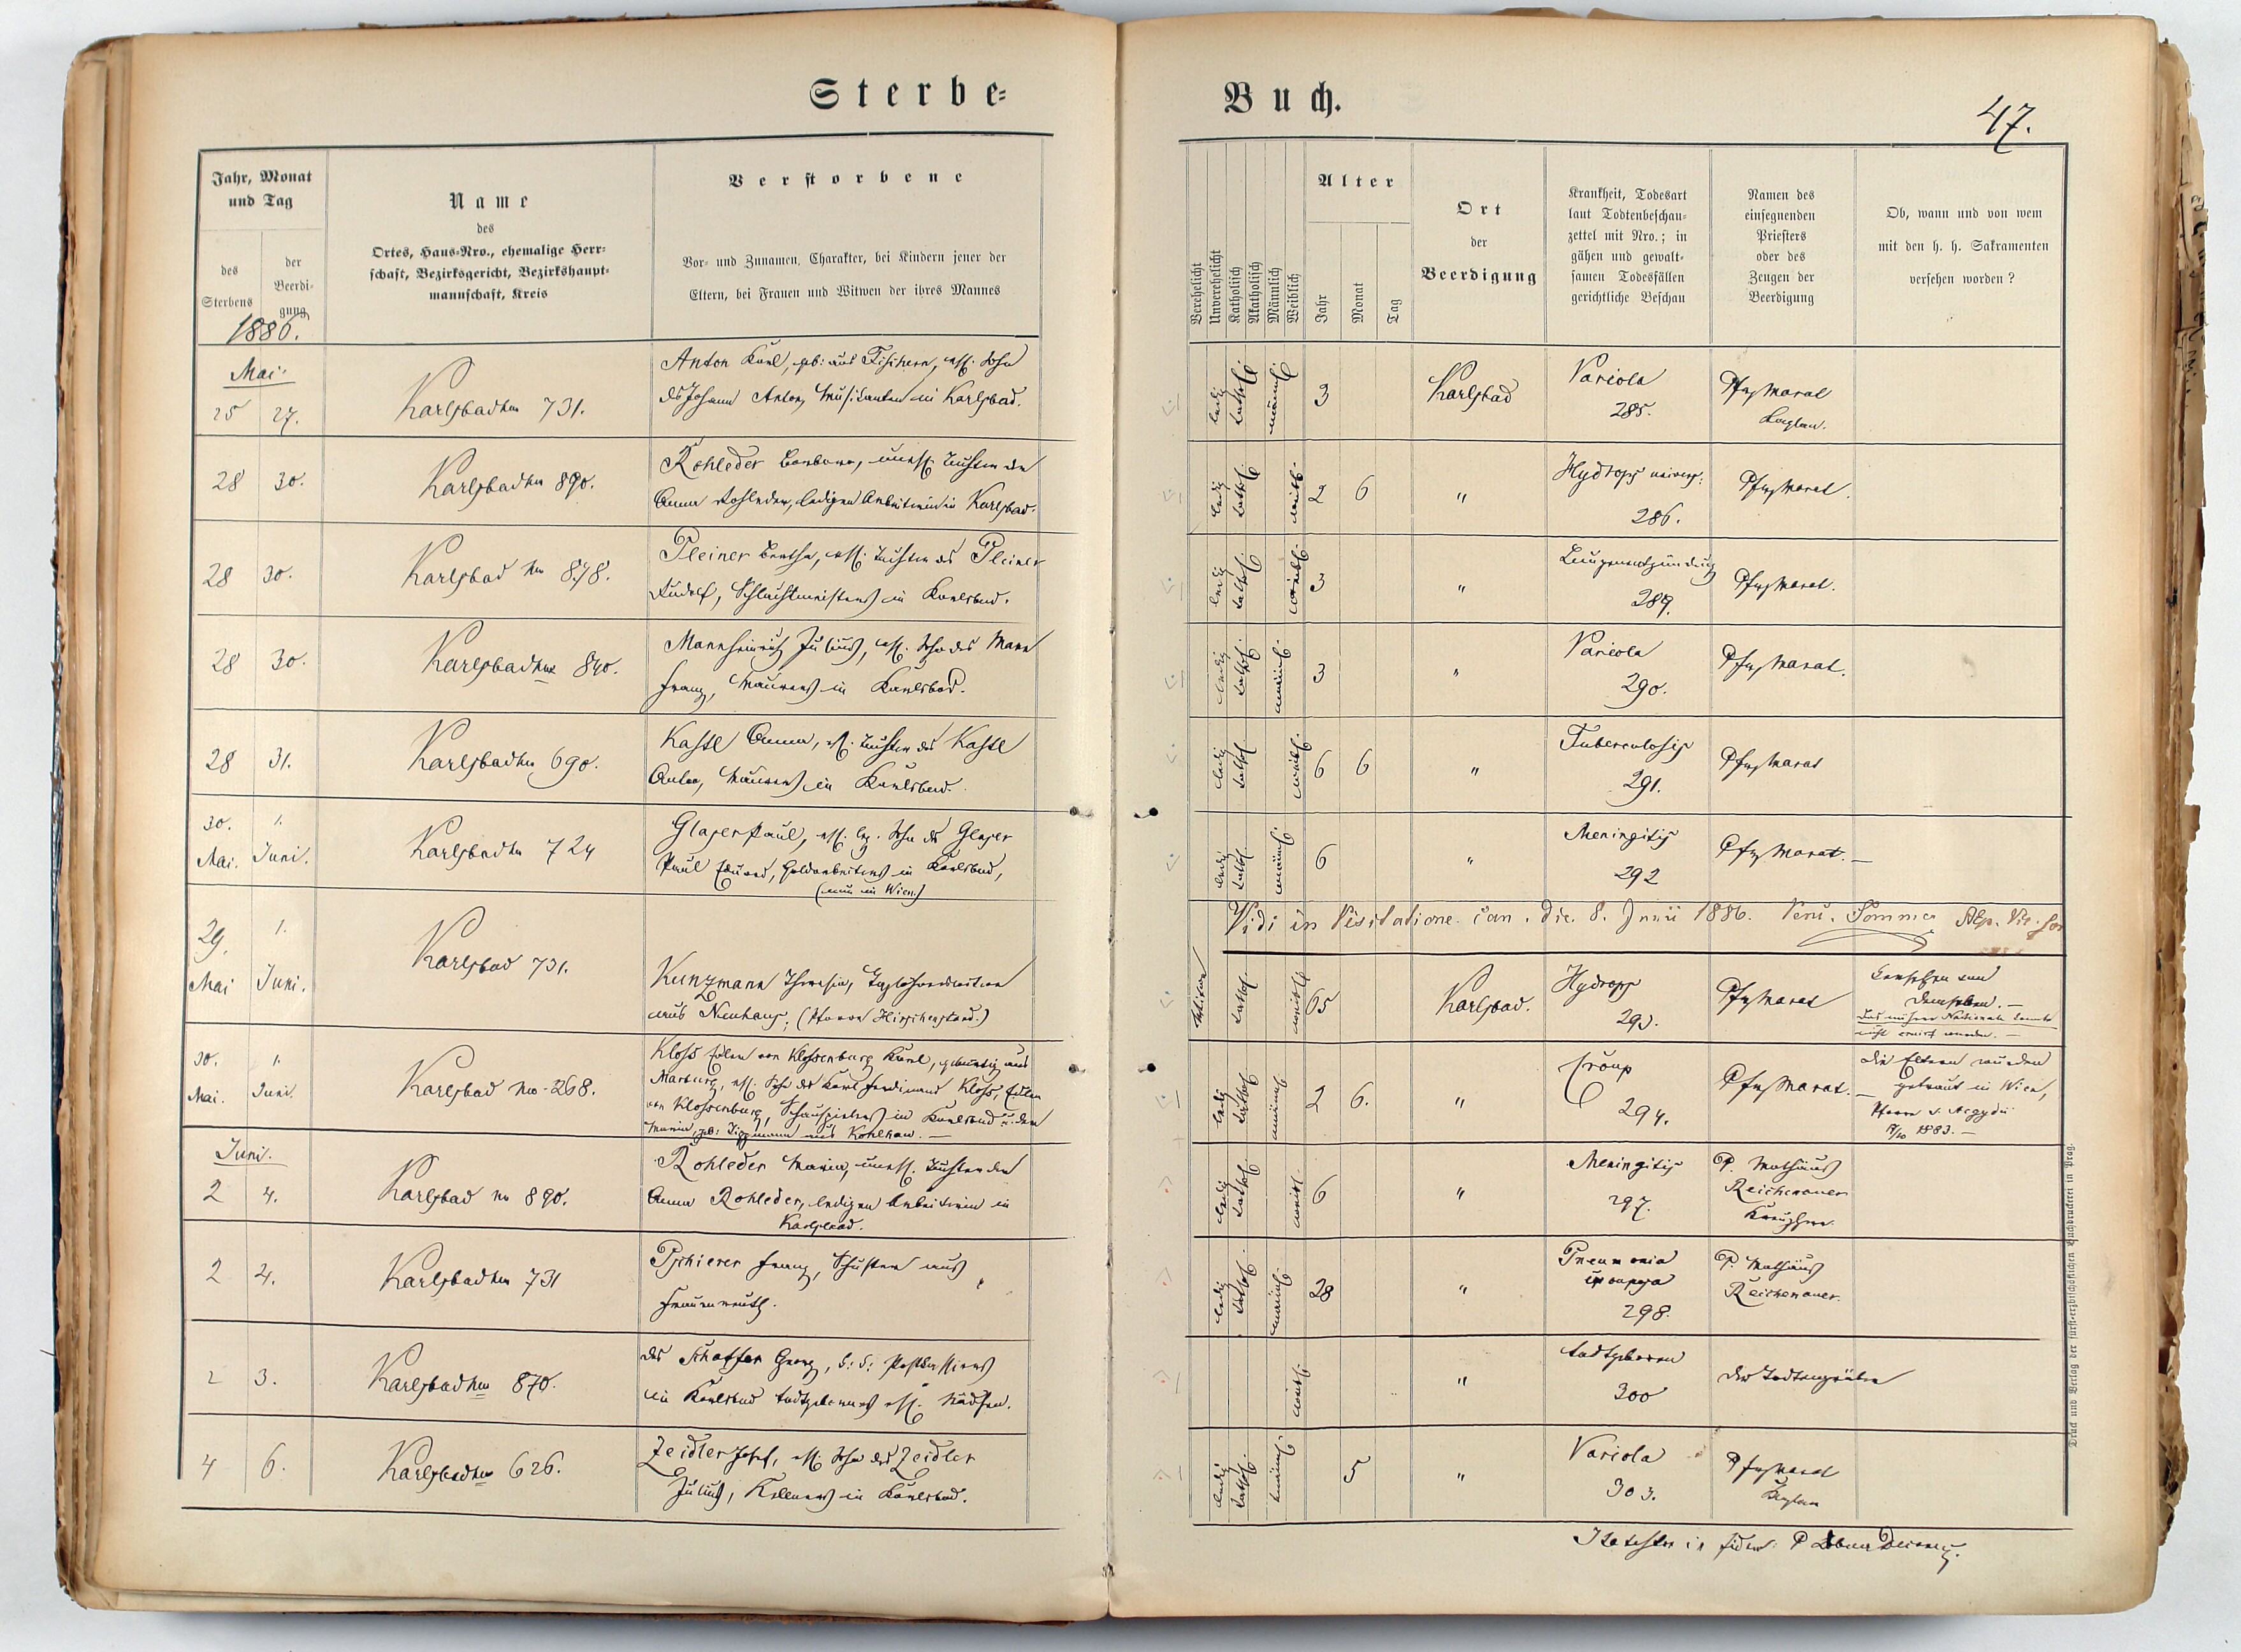 Sterbe=
Buch.
47.
Jahr, Monat
und Tag
des
Sterbens
der
Beerdi=
gung
1886.
Name
des
Ortes, Haus=Nro., ehemalige Herr=
schaft, Bezirksgericht, Bezirkshaupt=
mannschaft, Kreis
Verstorbene
Vor= und Zunamen, Charakter, bei Kindern jener der
Eltern, bei Frauen und Witwen der ihres Mannes
Verehelicht
Unverehelicht
Katholisch
Akatholisch
Männlich
Weiblich
Alter
Jahr
Monat
Tag
Ort
der
Beerdigung
Krankheit, Todesart
laut Todtenbeschau=
zettel mit Nro.; in
gähen und gewalt=
samen Todesfällen
gerichtliche Beschau
Namen des
einsegnenden
Priesters
oder des
Zeugen der
Beerdigung
Ob, wann und von wem
mit den h. h. Sakramenten
versehen worden?
Mai.
25 27. Karlsbad No 731.
Anton Karl, geb: aus Fischern, ehl. Sohn
des Johann Anton, Musikanten in Karlsbad.
ledig kathol. männl. 3 Karlsbad Variola
285.
Pfr. Marat
Kaplan.
28 30. Karlsbad No 890.
Rohleder Barbara, unehl. Tochter der
Anna Rohleder, ledigen Arbeiterin in Karlsbad.
ledig kathol. weibl. 2 6 " Hydrops univers.
286.
Pfr. Marat.
28 30. Karlsbad No 878.
Pleiner Bertha, ehl. Tochter des Pleiner
Rudolf, Schlachtmeisters in Karlsbad.
ledig kathol. weibl. 3 " Lungenentzündung
289.
Pfr. Marat.
28 30. Karlsbad No 840.
Julius, ehl. Sohn des Mann
Franz, Maurers in Karlsbad.
ledig kathol. männl. 3 " Variola
290.
Pfr. Marat.
28 31. Karlsbad No 690.
Kastl Anna, ehl. Tochter des Kastl
Anton, Maurers in Karlsbad.
ledig kathol. weibl. 6 6 " Tuberculosis
291.
Pfr. Marat
30. 1.
Mai. Juni. Karlsbad No 724
Glaser Paul, ehl. Sohn des Glaser
Paul Eduard, Goldarbeiters in Karlsbad,
(nun in Wien.)
ledig kathol. männl. 6 " Meningitis
292
Pfr. Marat.
Vidi in Visitatione can. die 8. Junii 1886.
29. 1.
Mai Juni. Karlsbad 731.
Kunzmann Theresia, Taglöhnerswitwe
aus Neuhaus, (Pfarre Hirschenstand.)
Witwe kathol. weibl. 65 Karlsbad. Hydrops
293.
Pfr. Marat
Versehen von
demselben.
Das nähere Nationale konnte
nicht eruirt werden.
30. 1.
Mai. Juni. Karlsbad No 268.
Kloss Edler von Klossenburg Karl, gebürtig aus
Marburg, ehl. Sohn des Karl Ferdinand Kloss, Edlen
von Klossenburg, Schauspielers in Karlsbad u. der
Maria, geb:
ledig kathol. männl. 2 6. " Croup
294.
Pfr. Marat.
Die Eltern wurden
getraut in Wien,
Pfarre s. Aegydii
1883.
Juni.
2 4. Karlsbad No 890.
Rohleder Maria, unehl. Tochter der
Anna Rohleder, ledigen Arbeiterin in
Karlsbad.
ledig kathol. weibl. 6 " Meningitis
297.
P. Mathäus
Reichenauer
Kreuzherr.
2 4. Karlsbad No 731
Pschierer Franz, Schuster aus
Frauenreuth.
ledig kathol. männl. 28 " Pneumonia
crouposa
298.
P. Mathäus
Reichenauer.
2 3. Karlsbad No 870.
des Schaffer Georg, k: k: Postkassiers
in Karlsbad todtgebornes ehl. Mädchen.
weibl. " todtgeboren
300
Der Todtengräber
4 6. Karlsbad No 626.
Zeidler Josef, ehl. Sohn des Zeidler
Julius, Kellners in Karlsbad.
ledig kathol. männl. 5 " Variola
303.
Pfr. Marat
Kaplan
Druck und Verlag der fürst=erzbischöflichen Buchdruckerei in Prag.